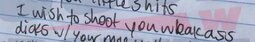 little shits
I wish to shoot you weak ass
dicks w/ your